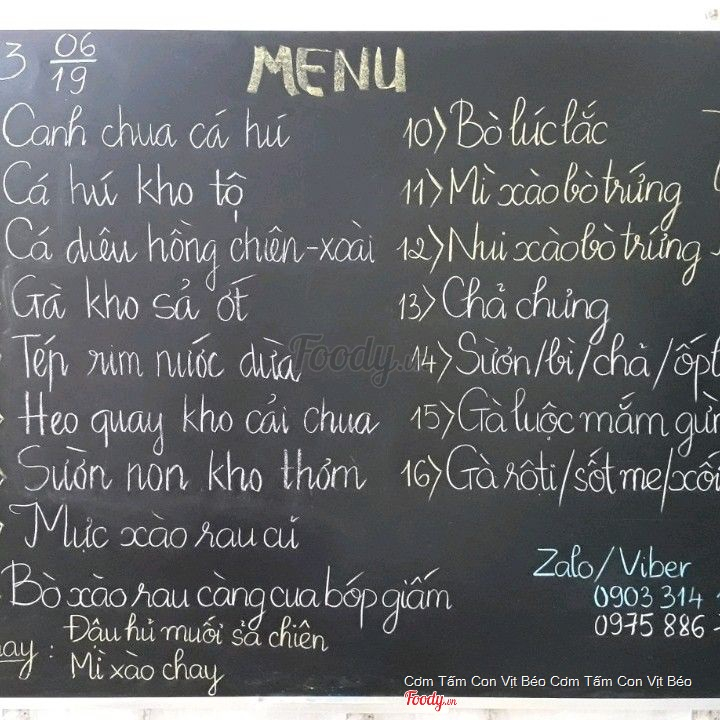 3 06/19
MENU
Canh chua cá hú
Cá hú kho tộ
Cá diêu hồng chiên-xoài
Gà kho sả ớt
Tép rim nước dừa
Heo quay kho cải chua
Sườn non kho thơm
Mực xào rau củ
Bò xào rau càng cua bóp giấm
ay : Đậu hủ muối sả chiên
Mì xào chay
10) Bò lúc lắc
11) Mì xào bò trứng
12) Nui xào bò trứng
13) Chả chưng
14) Sườn/bì/chả/ốpl
15) Gà luộc mắm gừn
16) Gà rôti/sốt me/xối
Zalo/Viber
0903 314
0975 886
Foody.vn
Cơm Tấm Con Vịt Béo Cơm Tấm Con Vịt Béo
Foody.vn